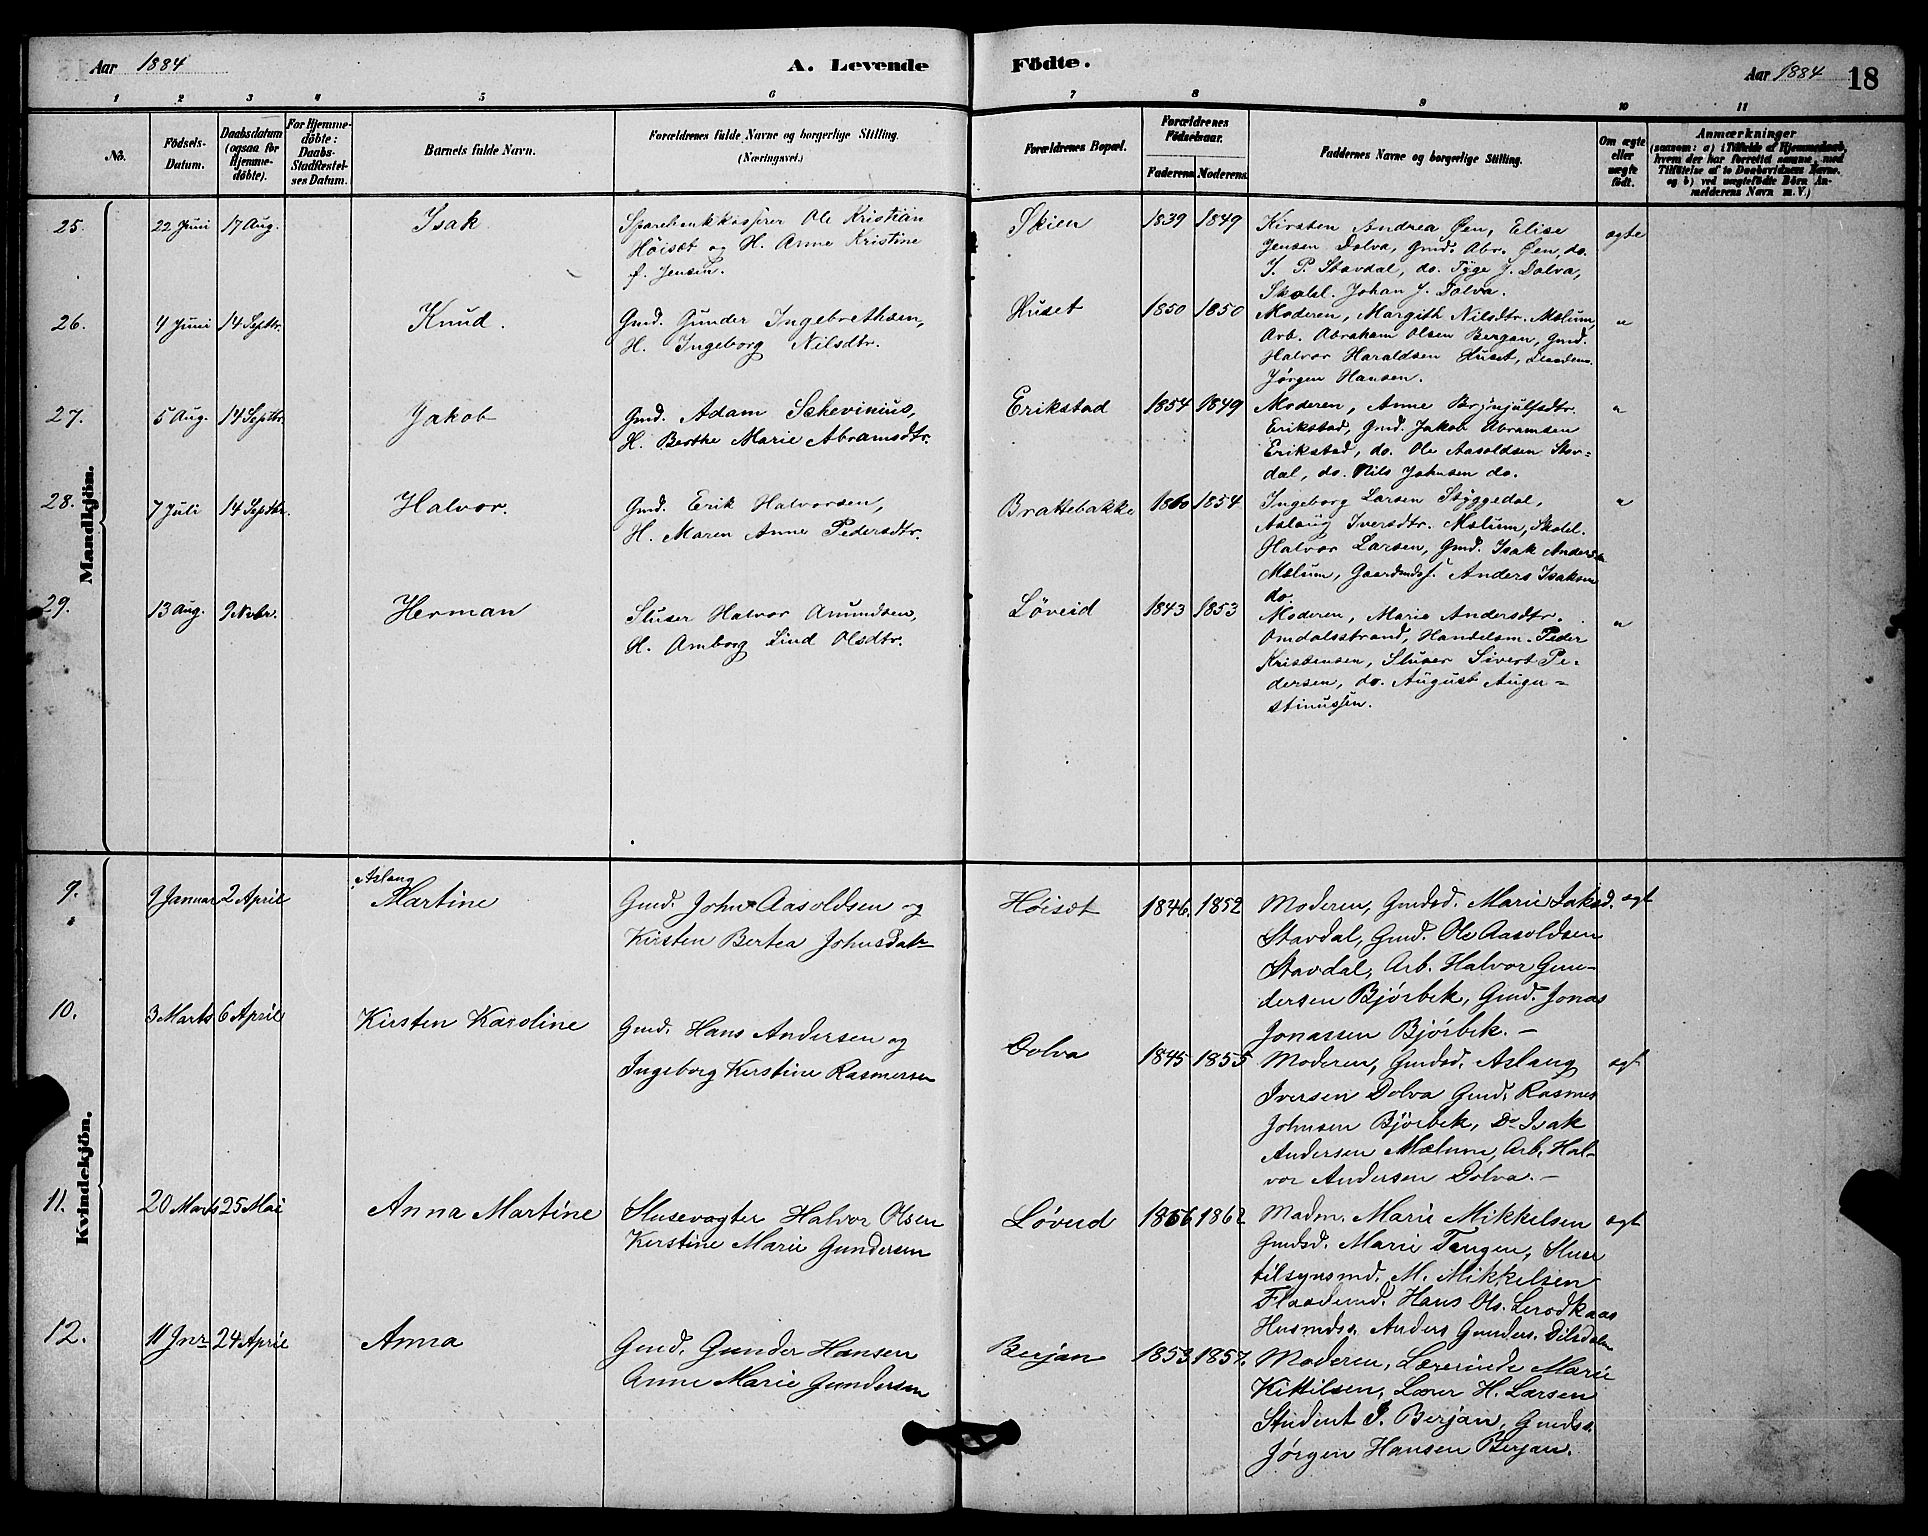 Aar 1884
A. Levende
Födte.
Aar 1884
18
1 2 3 4 5 6 7 8 9 10 11
No.
Födsels-
Datum.
Daabsdatum
(ogsaa for
Hjemme-
döbte).
For Hjemme-
döbte:
Daabs-
Stadfæstel-
ses Datum.
Barnets fulde Navn.
Forældrenes fulde Navne og borgerlige Stilling.
(Næringsvei.)
Forældrenes Bopæl.
Forældrenes
Födselsaar.
Faderens Moderens
Faddernes Navne og borgerlige Stilling.
Om ægte
eller
uægte
født.
Anmærkninger
(saasom: a) i Tilfælde af Hjemmedaab,
hvem der har forrettet samme, med
Tilføielse af to Daabsvidners Navne.
og b) ved uægtefödte Börn An-
melderens Navn m. V.)
Mandkjön.
25.
22 Juni
17 Aug.
Isak
Sparebankkasserer Ole Kristian
Höisæt og H. Anne Kristine
f. Jensen.
Skien
1839
1849
Kirsten Andrea Øen, Elise
Jensen Dolva, Gmd. Abr. Øen, do.
J. P. Stavdal, do. Tyge J. Dolva,
Skolel. Johan J. Dolva.
ægte
26.
4 Juni
14 Septbr.
Knud.
Gmd. Gunder Ingebrethsen,
H. Ingeborg Nilsdtr.
Huset
1850
1850
Moderen, Margith Nilsdtr. Mælum,
Arb. Abraham Olsen Bergan, Gmd.
Halvor Haraldsen Huset,
Jørgen Hansen.
"
27.
5 Aug.
14 Septbr.
Jakob
Gmd. Adam Schevinius,
H. Berthe Marie Abramsdtr.
Erikstad
1854
1849
Moderen, Anne Brynjulfsdtr.
Erikstad, Gmd. Jakob Abramsen
Erikstad, do. Ole Aasoldsen Stav-
dal, do. Nils Johnsen do.
"
28.
7 Juli
14 Septbr.
Halvor.
Gmd. Erik Halvorsen,
H. Maren Anne Pedersdtr.
Brattebakke
1860
1854
Ingeborg Larsen Styggedal,
Aslaug Iversdtr. Mælum, Skolel.
Halvor Larsen, Gmd. Isak Andersen
Mælum, Gaardmdsf. Anders Isaksen
do.
"
29.
13 Aug.
9 Novbr.
Herman
Sluser Halvor Amundsen,
H. Amborg Lind Olsdtr.
Løveid
1843
1853
Moderen, Marie Andersdtr.
Omdalsstrand, Handelsm. Peder
Kristensen, Sluser Sivert Pe-
dersen, do. August Augu-
stinussen.
"
Kvindekjön.
9.
9 Januar
2 April
Aslaug
Martine
Gmd. John Aasoldsen og
Kirsten Bertea Johnsdatr
Höisæt
1846
1852
Moderen, Gmdsd. Marie Jaksd.
Stavdal, Gmd. Ole Aasoldsen
Stavdal, Arb. Halvor Gun-
dersen Bjørbek, Gmd. Jonas
Jonassen Bjørbek. –
ægt
10.
3 Marts
6 April
Kirsten Karoline
Gmd. Hans Andersen og
Ingeborg Kirstine Rasmussen
Dolva
1845
1855
Moderen, Gmdsd. Aslaug
Iversen Dolva Gmd. Rasmus
Johnsen Bjørbek, Do Isak
Andersen Mælum, Arb. Hal-
vor Andersen Dolva. –
ægt
11.
20 Marts
25 Mai
Anna Martine
Slusevogter Halvor Olsen
Kirstine Marie Gundersen
Løveid
1856
1862
Madm. Marie Mikkelsen
Gmdsd. Marie Tangen, Sluse
tilsynsmd. M. Mikkelsen
Hans Ols.
Husmds. Anders Gunders.
ægt
12.
11 Jnr
24 April
Anna
Gmd. Gunder Hansen
Anne Marie Gundersen
Berjan
1853
1857.
Moderen, Lærerinde Marie
Kittilsen, Lærer H. Larsen
Student J. Berjan, Gmdss.
Jørgen Hansen Berjan.